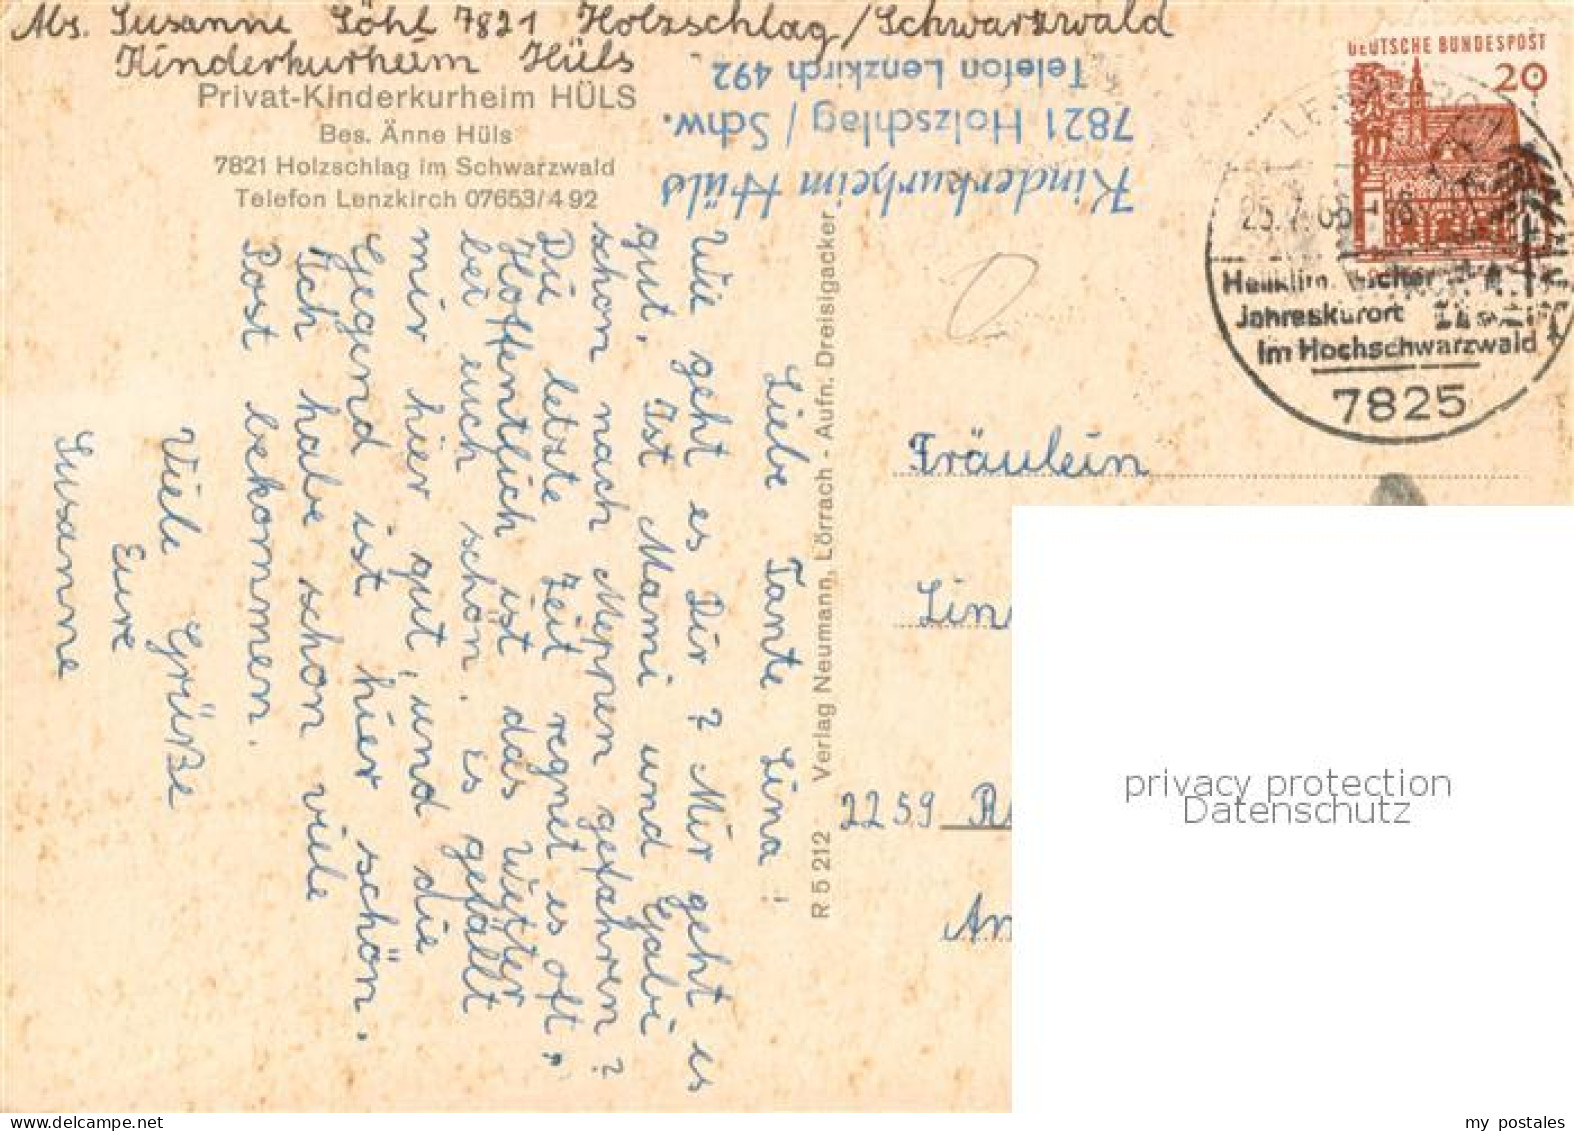 Abs. Susanne Söhl 7821 Holzschlag/Schwarzwald
Kinderkurheim Hüls
Privat-Kinderkurheim HÜLS
Bes. Änne Hüls
7821 Holzschlag im Schwarzwald
Telefon Lenzkirch 07653/4 92
Kinderkurheim Hüls
7821 Holzschlag / Schw.
Telefon Lenzkirch 492
DEUTSCHE BUNDESPOST
20
25.7.66-18
Heilklim.
Jahreskurort
im Hochschwarzwald
7825
Liebe Tante Lina!
Wie geht es Dir? Mir geht es
gut. Ist Mami und Gabi
schon nach Meppen gefahren?
Du letzte Zeit regnet es oft.
Hoffentlich ist das Wetter
bei euch schön. Es gefällt
mir hier gut, und die
Gegend ist hier schön.
Ich habe schon viele
Post bekommen.
Viele Grüße
Eure
Susanne
R 5 212 Verlag Neumann, Lörrach - Aufn. Dreisigacker
Fräulein
Lin
2259
An
privacy protection
Datenschutz
my postales